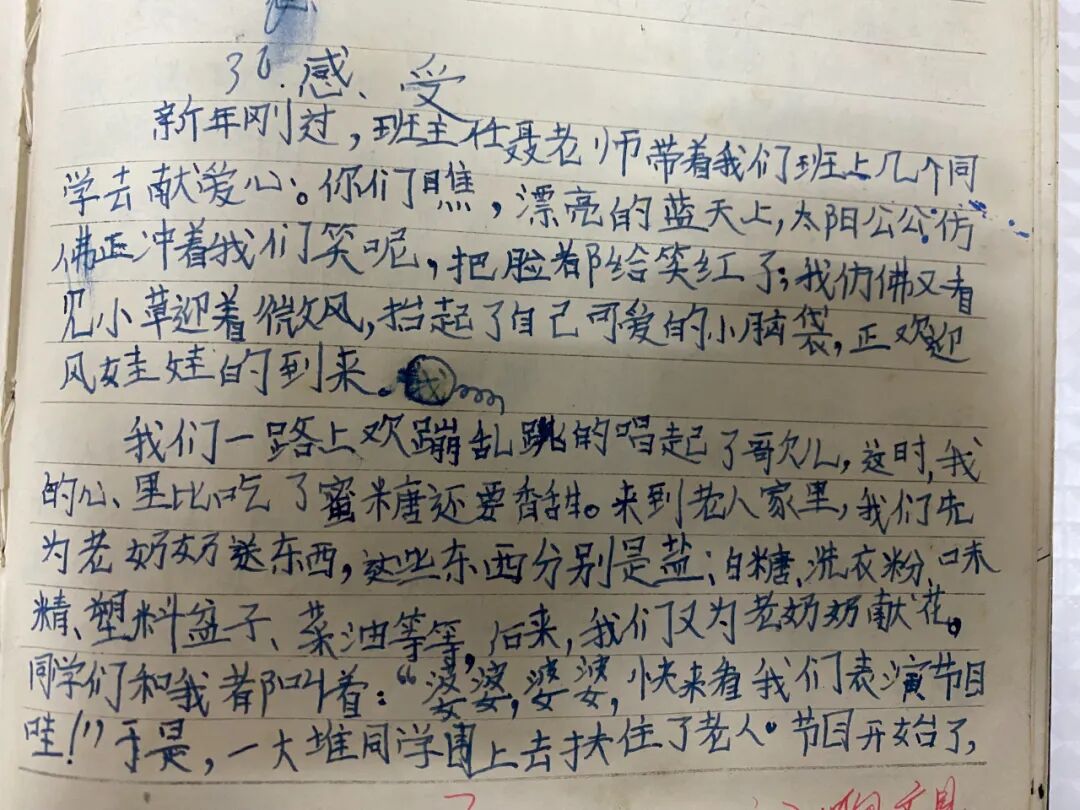 30.感受
新年刚过，班主任聂老师带着我们班上几个同
学去献爱心。你们瞧，漂亮的蓝天上，太阳公公仿
佛正冲着我们笑呢，把脸都给笑红了；我仿佛又看
见小草迎着微风，抬起了自己可爱的小脑袋，正欢迎
风娃娃的到来。
我们一路上欢蹦乱跳的唱起了歌儿，这时，我
的心里比吃了蜜糖还要香甜。来到老人家里，我们先
为老奶奶送东西，这些东西分别是盐、白糖、洗衣粉、味
精、塑料盆子、菜油等等，后来，我们又为老奶奶献花。
同学们和我都叫着：“婆婆，婆婆，快来看我们表演节目
哇！”于是，一大堆同学围上去扶住了老人。节目开始了，